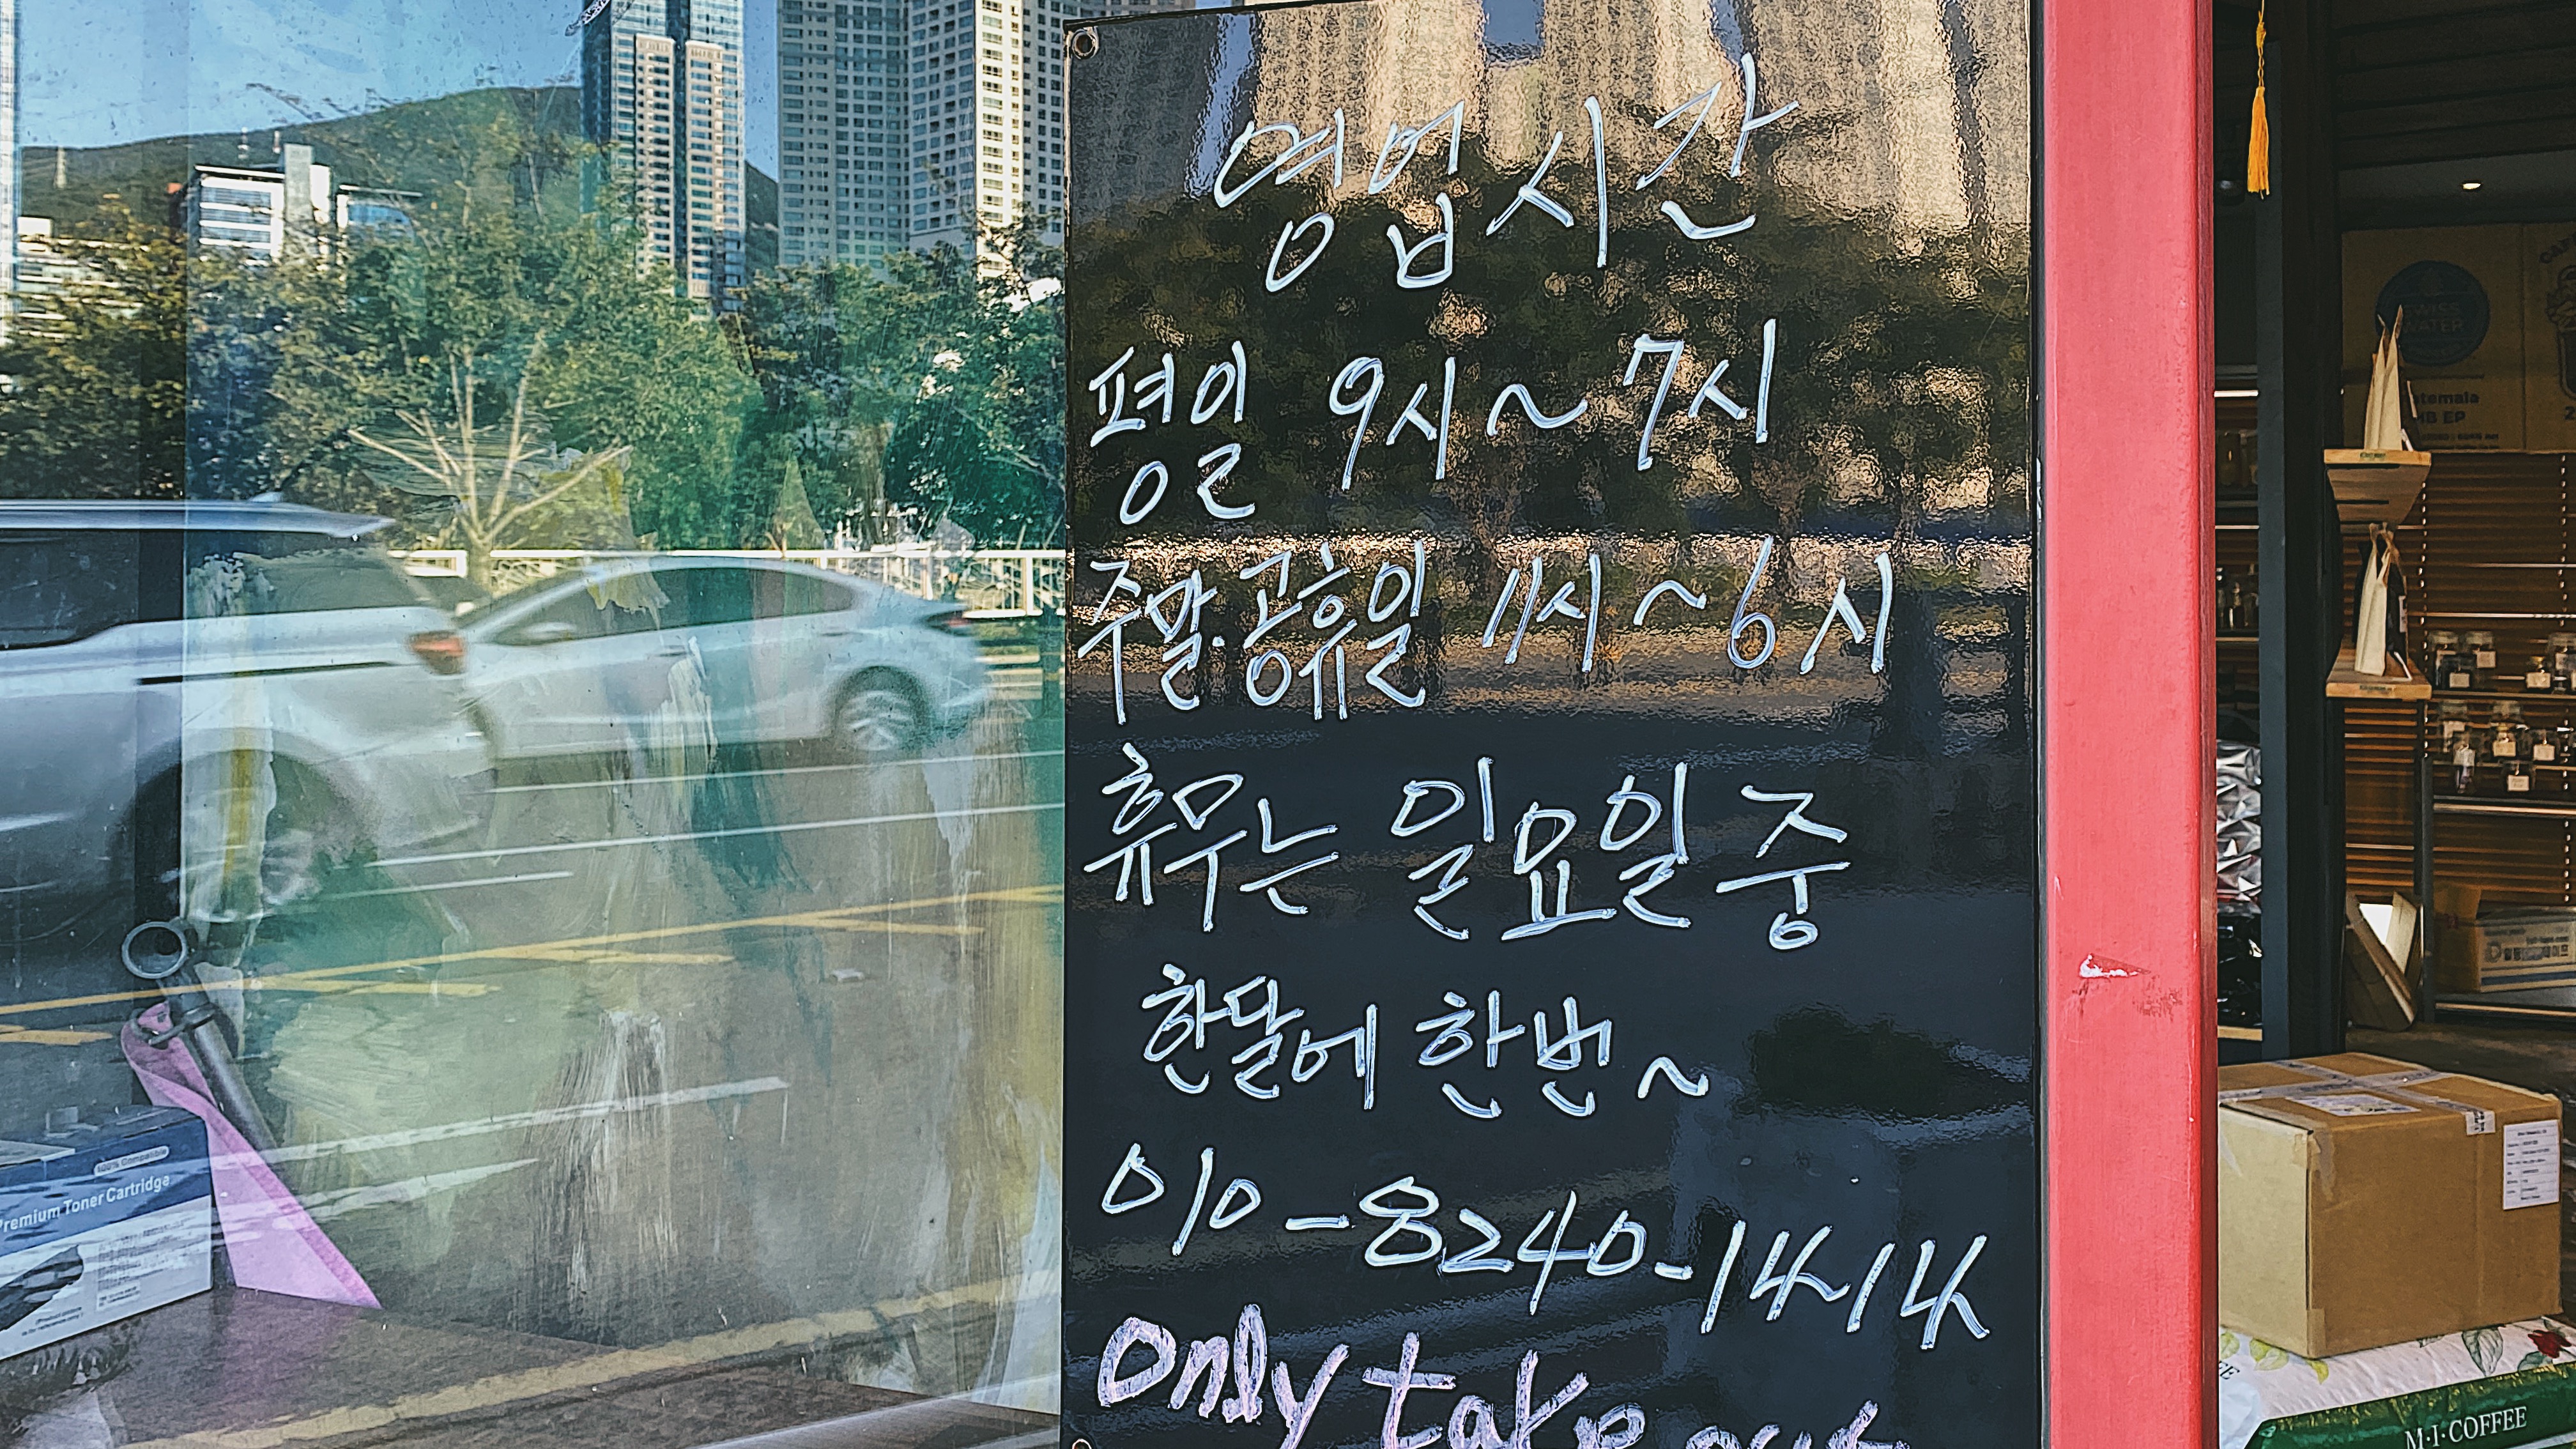 영업시간
평일 9시~7시
주말.공휴일 11시~6시
휴무는 일요일중
한달에 한번~
010-8240-1414
Only take out
100% Compatible
Premium Toner Cartridge
SWISS
WATER
M·I·COFFEE